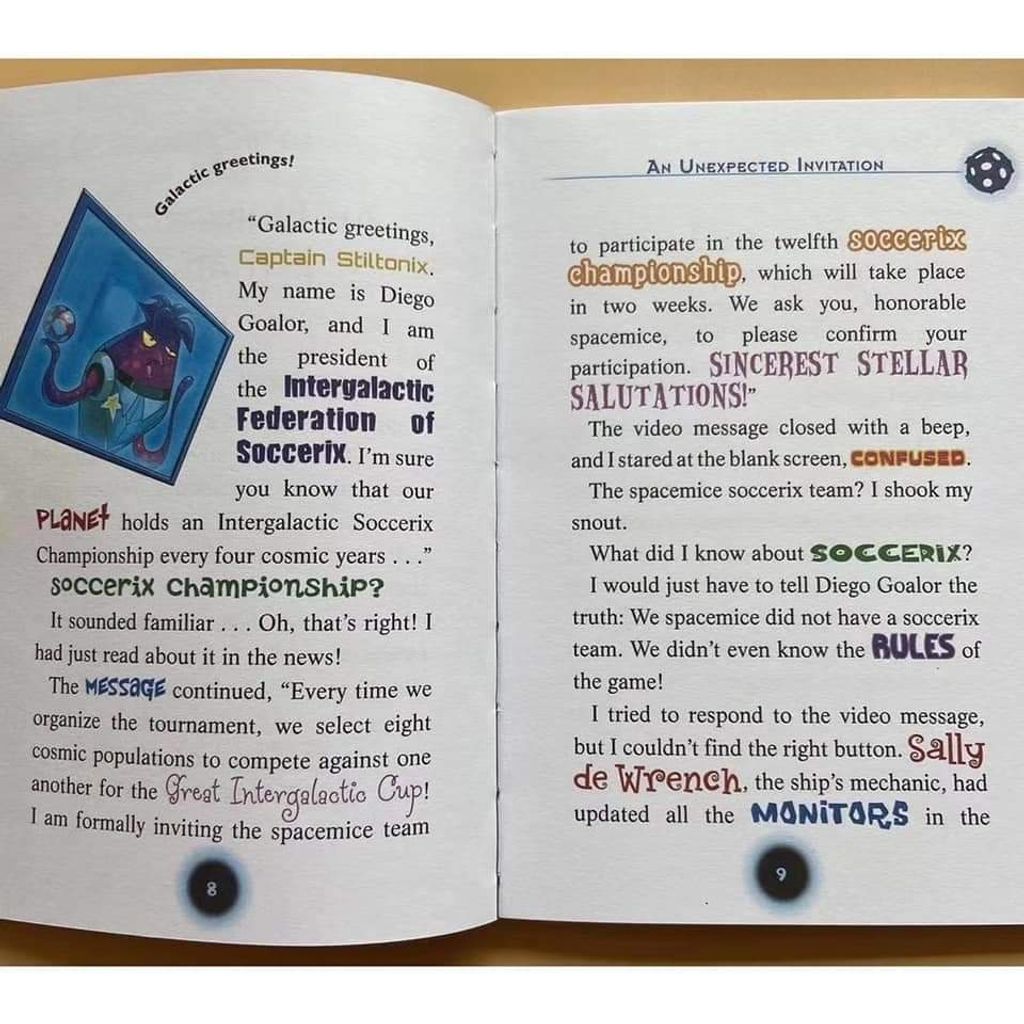 Galactic greetings!
“Galactic greetings,
Captain Stiltonix.
My name is Diego
Goalor, and I am
the president of
the Intergalactic
Federation of
Soccerix. I’m sure
you know that our
PLANET holds an Intergalactic Soccerix
Championship every four cosmic years . . .”
Soccerix Championship?
It sounded familiar . . . Oh, that’s right! I
had just read about it in the news!
The MESSAGE continued, “Every time we
organize the tournament, we select eight
cosmic populations to compete against one
another for the Great Intergalactic Cup!
I am formally inviting the spacemice team
8
An Unexpected Invitation
to participate in the twelfth soccerix
championship, which will take place
in two weeks. We ask you, honorable
spacemice, to please confirm your
participation. SINCEREST STELLAR
SALUTATIONS!”
The video message closed with a beep,
and I stared at the blank screen, CONFUSED.
The spacemice soccerix team? I shook my
snout.
What did I know about SOCCERIX?
I would just have to tell Diego Goalor the
truth: We spacemice did not have a soccerix
team. We didn’t even know the RULES of
the game!
I tried to respond to the video message,
but I couldn’t find the right button. Sally
de Wrench, the ship’s mechanic, had
updated all the MONITORS in the
9